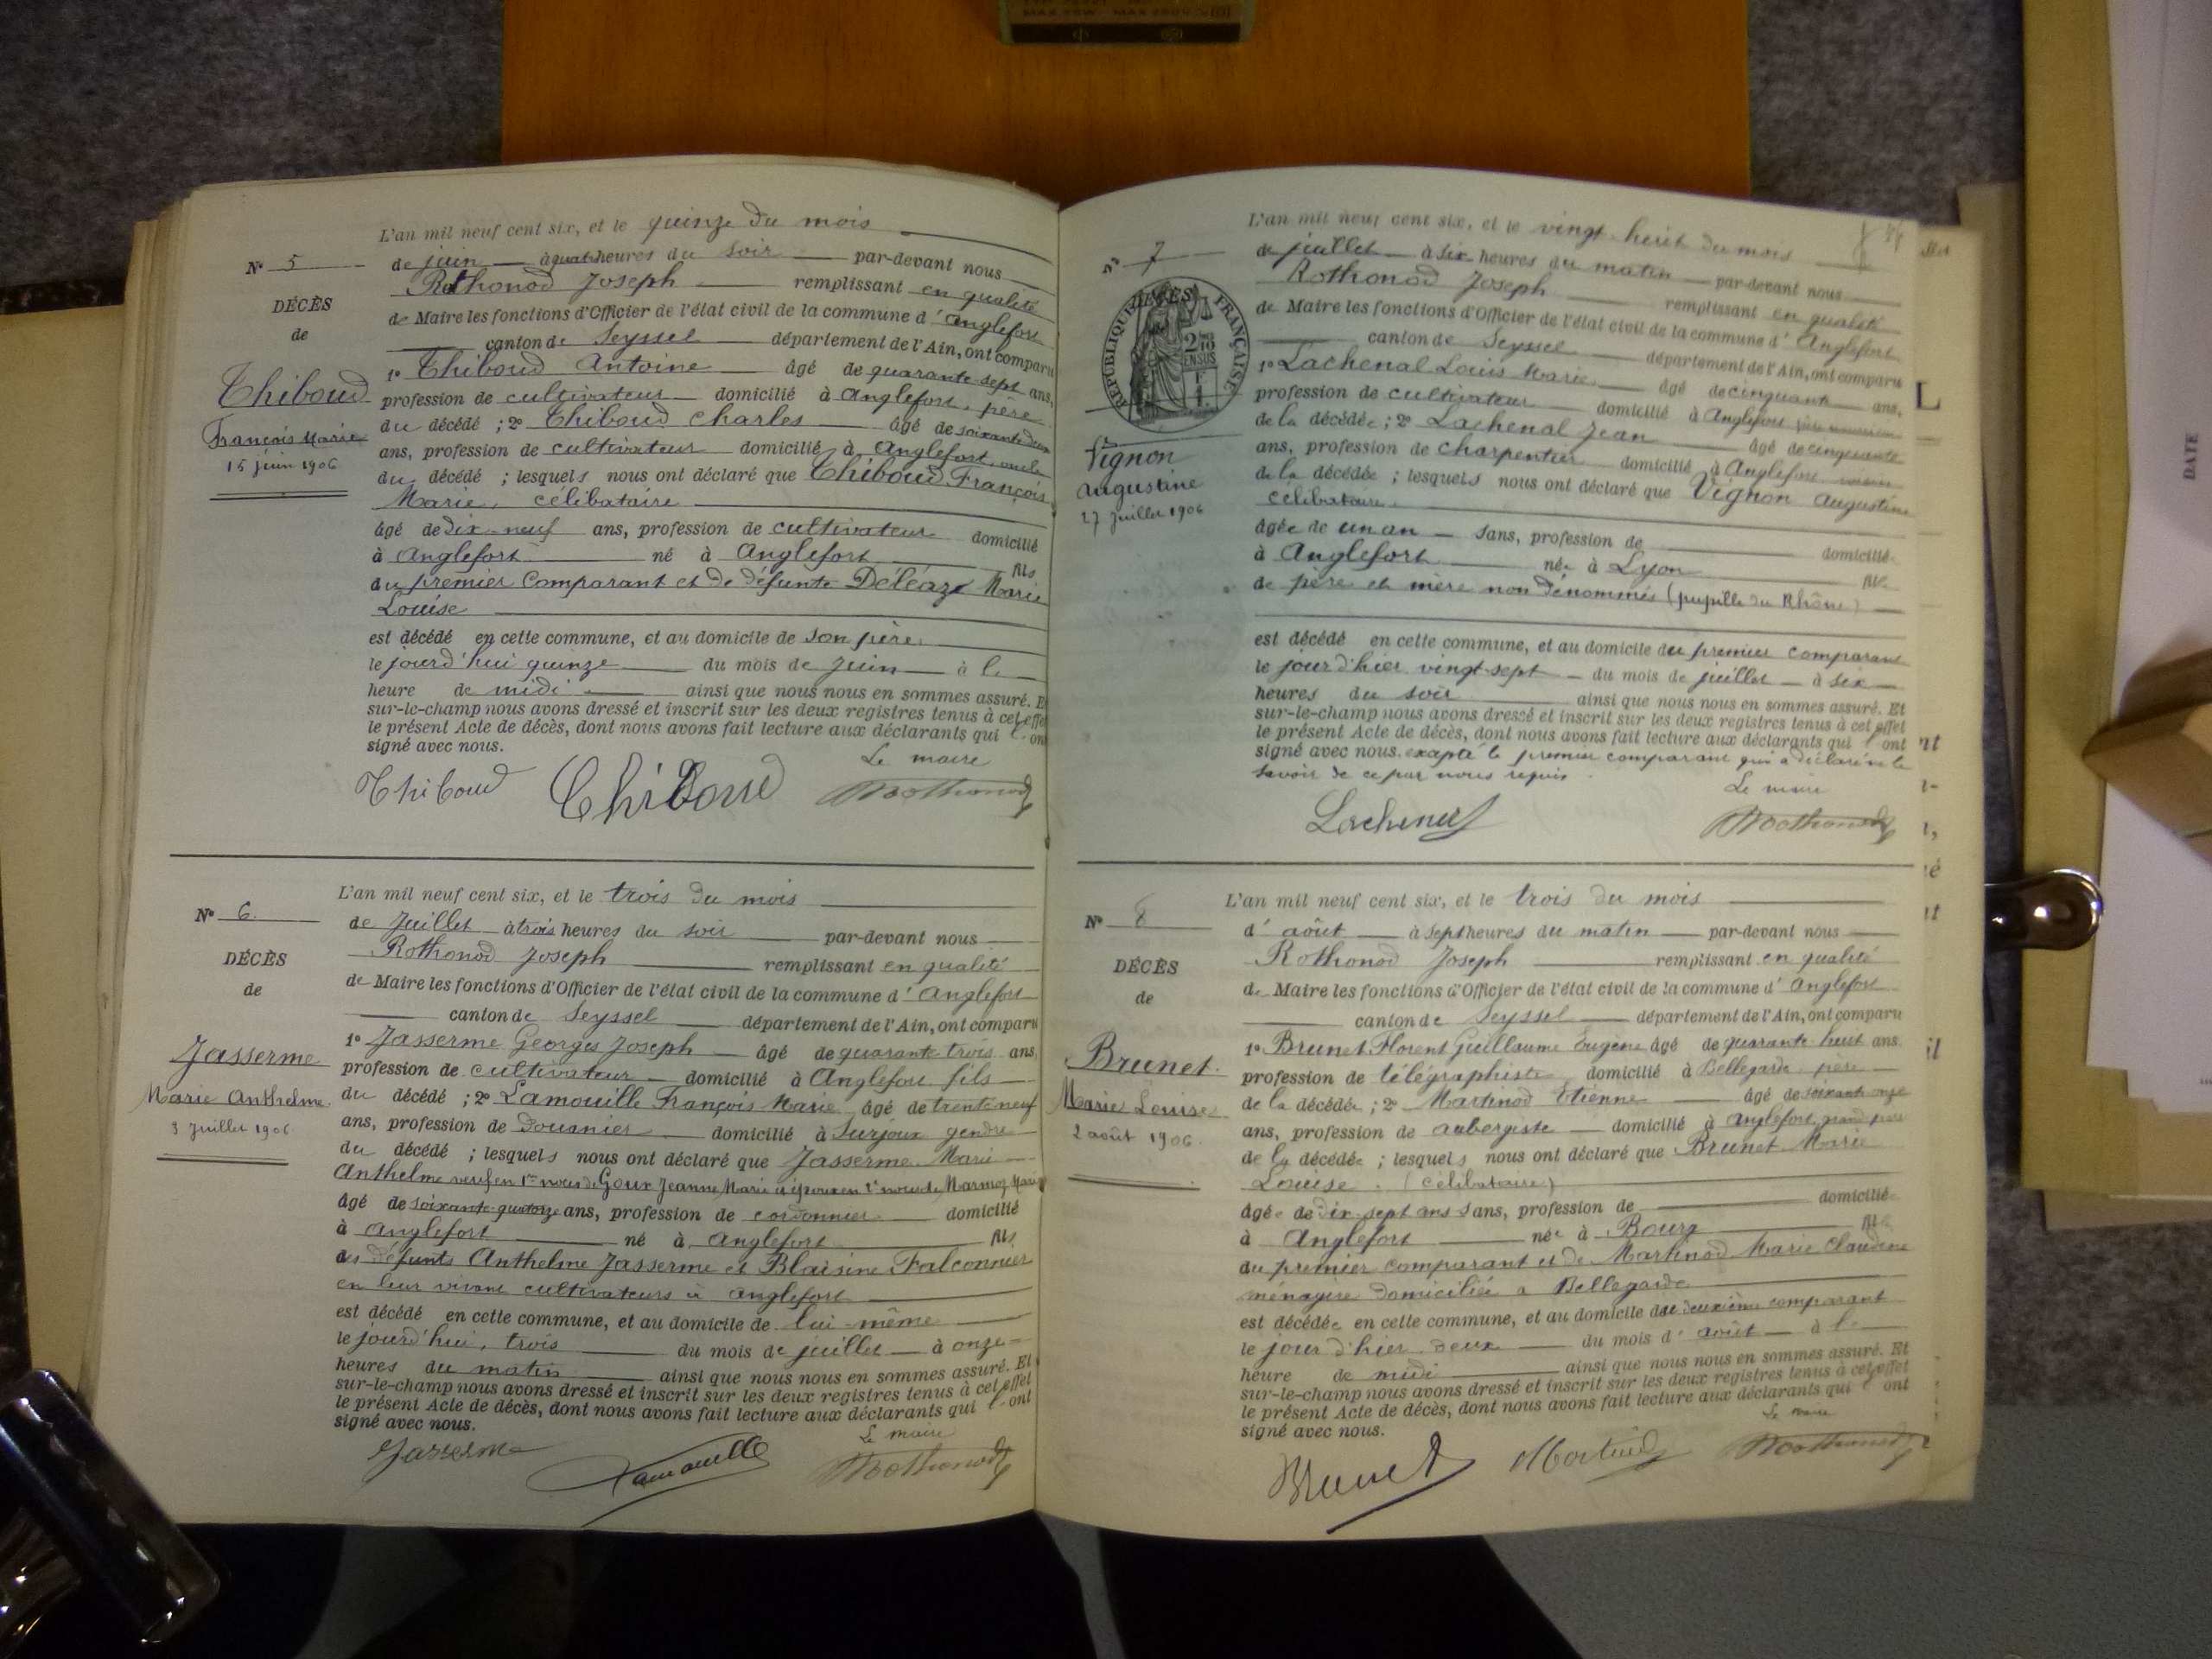 L'an mil neuf cent six, et le quinze du mois
N° 5
de juin à quatre heures du soir par-devant nous
Rothonod Joseph remplissant en qualité
DÉCÈS
de Maire les fonctions d'Officier de l'état civil de la commune d'Anglefort
de
canton de Seyssel département de l'Ain, ont comparu
1° Thiboud Antoine âgé de quarante-sept ans,
Thiboud
profession de cultivateur domicilié à Anglefort, père
du décédé ; 2° Thiboud Charles âgé de soixante deux
François Marie
ans, profession de cultivateur domicilié à Anglefort, oncle
15 juin 1906
du décédé ; lesquels nous ont déclaré que Thiboud François
Marie, célibataire
âgé de dix-neuf ans, profession de cultivateur domicilié
à Anglefort né à Anglefort fils
du premier comparant et de défunte Déléaz Marie
Louise
est décédé en cette commune, et au domicile de son père
le jourd'hui quinze du mois de juin à l
heure de midi ainsi que nous nous en sommes assuré. Et
sur-le-champ nous avons dressé et inscrit sur les deux registres tenus à cet effet
le présent Acte de décès, dont nous avons fait lecture aux déclarants qui l'ont
signé avec nous.
Le maire
Thiboud Thiboud Rothonod
L'an mil neuf cent six, et le trois du mois
N° 6
de Juillet à trois heures du soir par-devant nous
Rothonod Joseph remplissant en qualité
DÉCÈS
de Maire les fonctions d'Officier de l'état civil de la commune d'Anglefort
de
canton de Seyssel département de l'Ain, ont comparu
1° Jasserme Georges Joseph âgé de quarante trois ans,
Jasserme
profession de cultivateur domicilié à Anglefort fils
Marie Anthelme
du décédé ; 2° Lamouille François Marie âgé de trente neuf
3 Juillet 1906
ans, profession de douanier domicilié à Surjoux gendre
du décédé ; lesquels nous ont déclaré que Jasserme Marie
Anthelme veuf en 1res noces de Goux Jeanne Marie et époux en 2e noces de Marmoz Marie
âgé de soixante-quatorze ans, profession de cordonnier domicilié
à Anglefort né à Anglefort fils
des défunts Anthelme Jasserme et Blaisine Falconnier
en leur vivant cultivateurs à Anglefort
est décédé en cette commune, et au domicile de lui-même
le jourd'hui, trois du mois de juillet à onze
heures du matin ainsi que nous nous en sommes assuré. Et
sur-le-champ nous avons dressé et inscrit sur les deux registres tenus à cet effet
le présent Acte de décès, dont nous avons fait lecture aux déclarants qui l'ont
signé avec nous.
Le maire
Jasserme Lamouille Rothonod
L'an mil neuf cent six, et le vingt-huit du mois
N° 7
de juillet à six heures du matin par-devant nous
Rothonod Joseph remplissant en qualité
de Maire les fonctions d'Officier de l'état civil de la commune d'Anglefort
RÉPUBLIQUE FRANÇAISE
DÉCÈS
canton de Seyssel département de l'Ain, ont comparu
1° Lachenal Louis Marie âgé de cinquante ans,
profession de cultivateur domicilié à Anglefort père nourricier
de la décédée ; 2° Lachenal Jean âgé de cinquante
Vignon
ans, profession de charpentier domicilié à Anglefort voisin
Augustine
de la décédée ; lesquels nous ont déclaré que Vignon Augustine
27 Juillet 1906
célibataire
âgée de un an sans, profession de domicilié
à Anglefort née à Lyon fille
de père et mère non dénommés (pupille du Rhône)
est décédé en cette commune, et au domicile du premier comparant
le jour d'hier vingt-sept du mois de juillet à six
heures du soir ainsi que nous nous en sommes assuré. Et
sur-le-champ nous avons dressé et inscrit sur les deux registres tenus à cet effet
le présent Acte de décès, dont nous avons fait lecture aux déclarants qui l'ont
signé avec nous. exapté le premier comparant qui a déclaré ne le
savoir de ce par nous requis
Le maire
Lachenal Rothonod
L'an mil neuf cent six, et le trois du mois
N° 8
d'août à sept heures du matin par-devant nous
Rothonod Joseph remplissant en qualité
DÉCÈS
de Maire les fonctions d'Officier de l'état civil de la commune d'Anglefort
de
canton de Seyssel département de l'Ain, ont comparu
1° Brunet Florent Guillaume Eugène âgé de quarante huit ans
Brunet
profession de télégraphiste domicilié à Bellegarde père
Marie Louise
de la décédée ; 2° Martinod Etienne âgé de soixante onze
2 août 1906
ans, profession de aubergiste domicilié à Anglefort, grand père
de la décédée ; lesquels nous ont déclaré que Brunet Marie
Louise. (célibataire)
âgée de dix-sept ans sans, profession de domicilié
à Anglefort née à Bourg fille
du premier comparant et de Martinod Marie Claudine
ménagère domiciliée à Bellegarde
est décédée en cette commune, et au domicile du deuxième comparant
le jour d'hier deux du mois d'août à l
heure de midi ainsi que nous nous en sommes assuré. Et
sur-le-champ nous avons dressé et inscrit sur les deux registres tenus à cet effet
le présent Acte de décès, dont nous avons fait lecture aux déclarants qui l'ont
signé avec nous.
Le maire
Brunet Martinod Rothonod
DATE